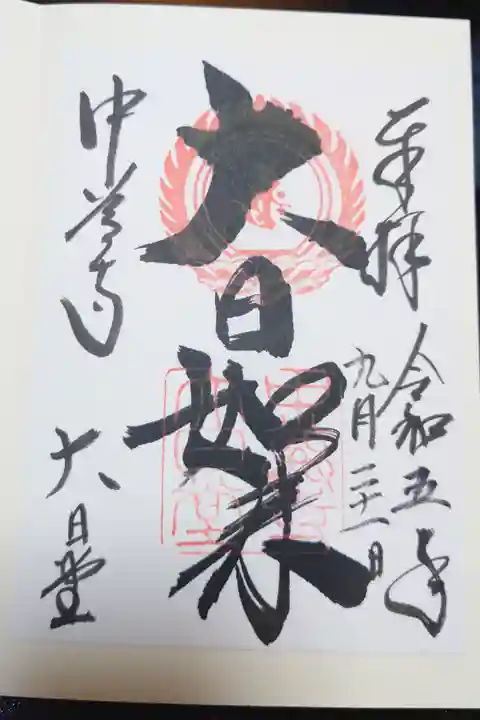 奉拝
令和五年
九月二十一日
大日如来
中尊寺
大日堂